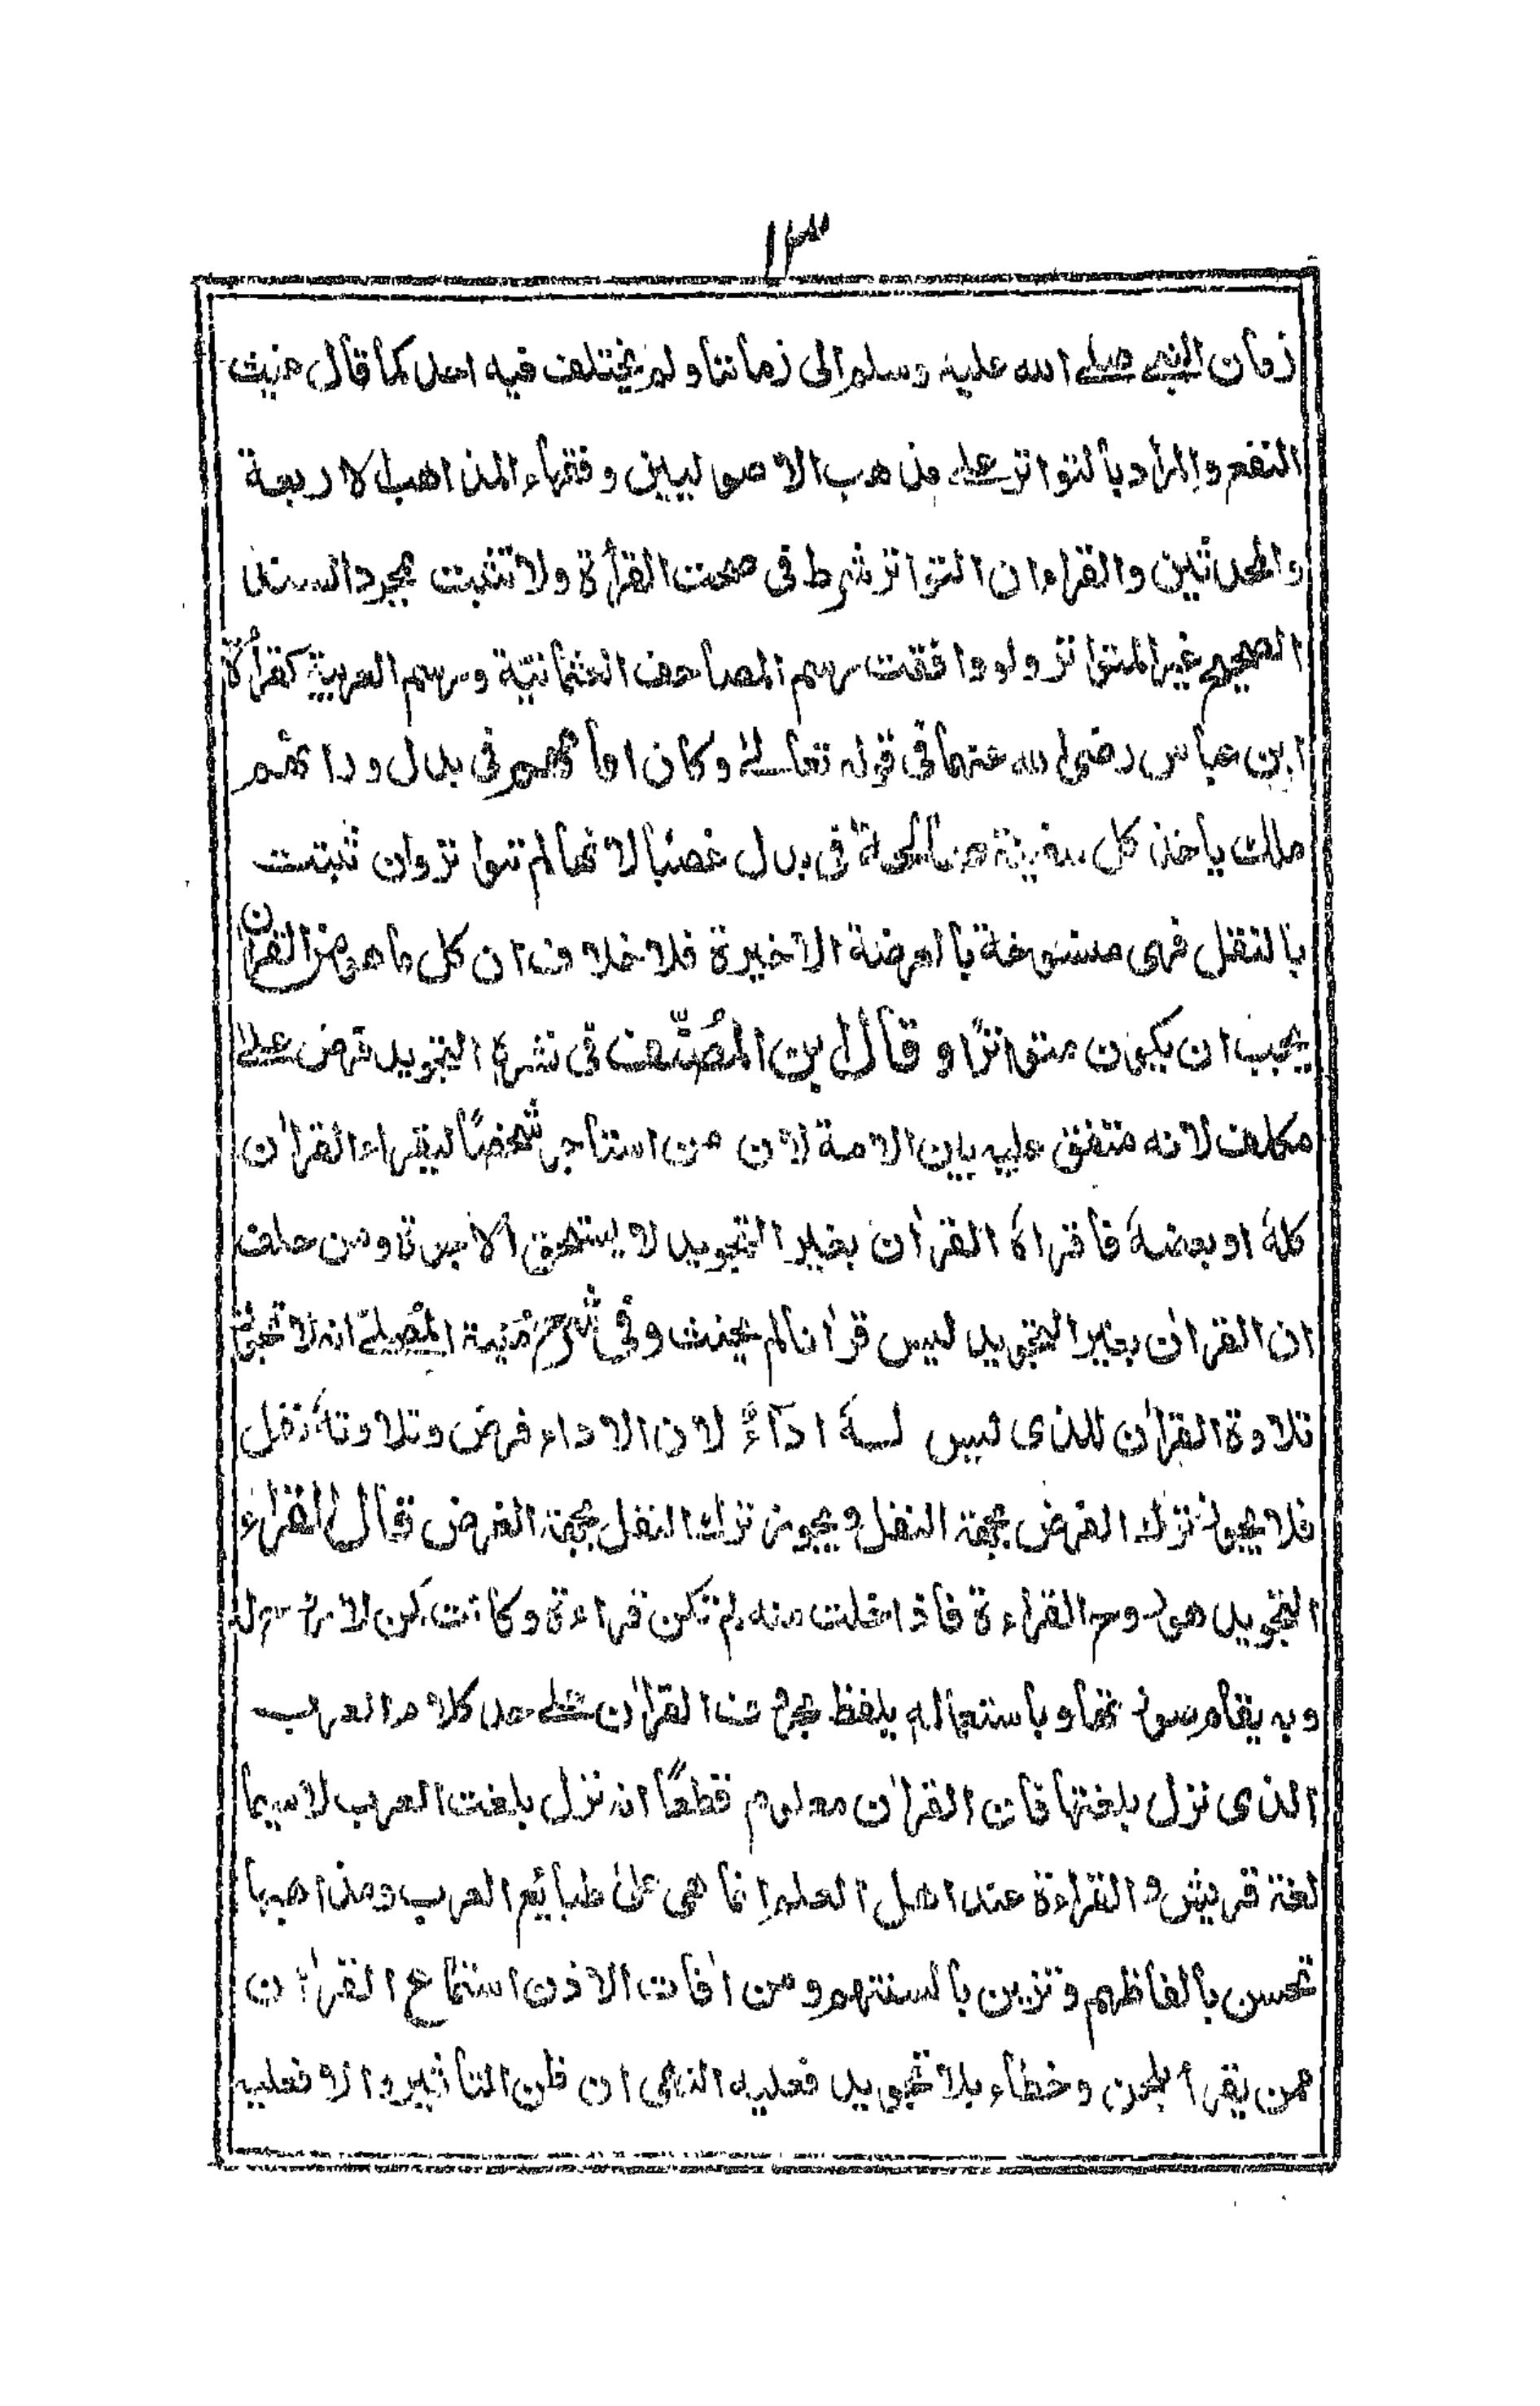 ١٣
زمان النبي صلے الله عليه وسلم الى زماننا ولم يختلف فيه احد كما قال
والمراد بالتواتر علے مذهب الاصوليين وفقهاء المذاهب الاربعة
والمحدثين والقراء ان التواتر شرط فى صحت القرأة ولا تثبت بمجرد السند
الصحيح غير المتواتر ولو وافقت رسم المصاحف العثمانية ورسم العربية كقرأة
ابن عباس رضى الله عنهما فى قوله تعالے وكان امامهم فى بدل وراءهم
ملك ياخذ كل سفينة صالحة فى بدل غصبًا لانها لم تتواتر وان ثبتت
بالنقل فهى منسوخة بالعرضة الاخيرة فلا خلاف ان كل ما هو من القرأن
يجب ان يكون متواترًا وقال ابن المُصنّف فى نشره التجويد فرض علے
مكلف لانه متفق عليه بين الامة لان من استاجر شخصًا ليقراء القرأن
كلهٗ او بعضهٗ فاقراهٗ القرأن بغير التجويد لا يستحق الاجرة ومن حلف
ان القرأن بغير التجويد ليس قرأنا لم يحنث وفى شرح مُنية المُصلے انه لا تجوز
تلاوة القرأن للذى ليس لهٗ اداءٌ لان الاداء فرض وتلاوتهٗ نفل
فلا يجوز ترك الفرض بجهة النفل ويجوز ترك النفل بجهة الفرض قال القراء
التجويد هو روح القراءة فاذا خلت منه لم تكن قراءة وكانت كمن لا روح له
وبه يقام وباستعماله يلفظ القرأن علے حد كلام العرب
الذى نزل بلغتها فان القرأن معلوم قطعًا انه نزل بلغت العرب لاسيما
لغة قريش والقراءة عند اهل العلم انما هى على طبائع العرب ومذاهبها
تحسن بالفاظهم وتزين بالسنتهم ومن أفات الاذن استماع القرأن
ممن يقرأ بلحن وخطاء بلا تجويد فعليه النهى ان ظن التاثير والا فعليه